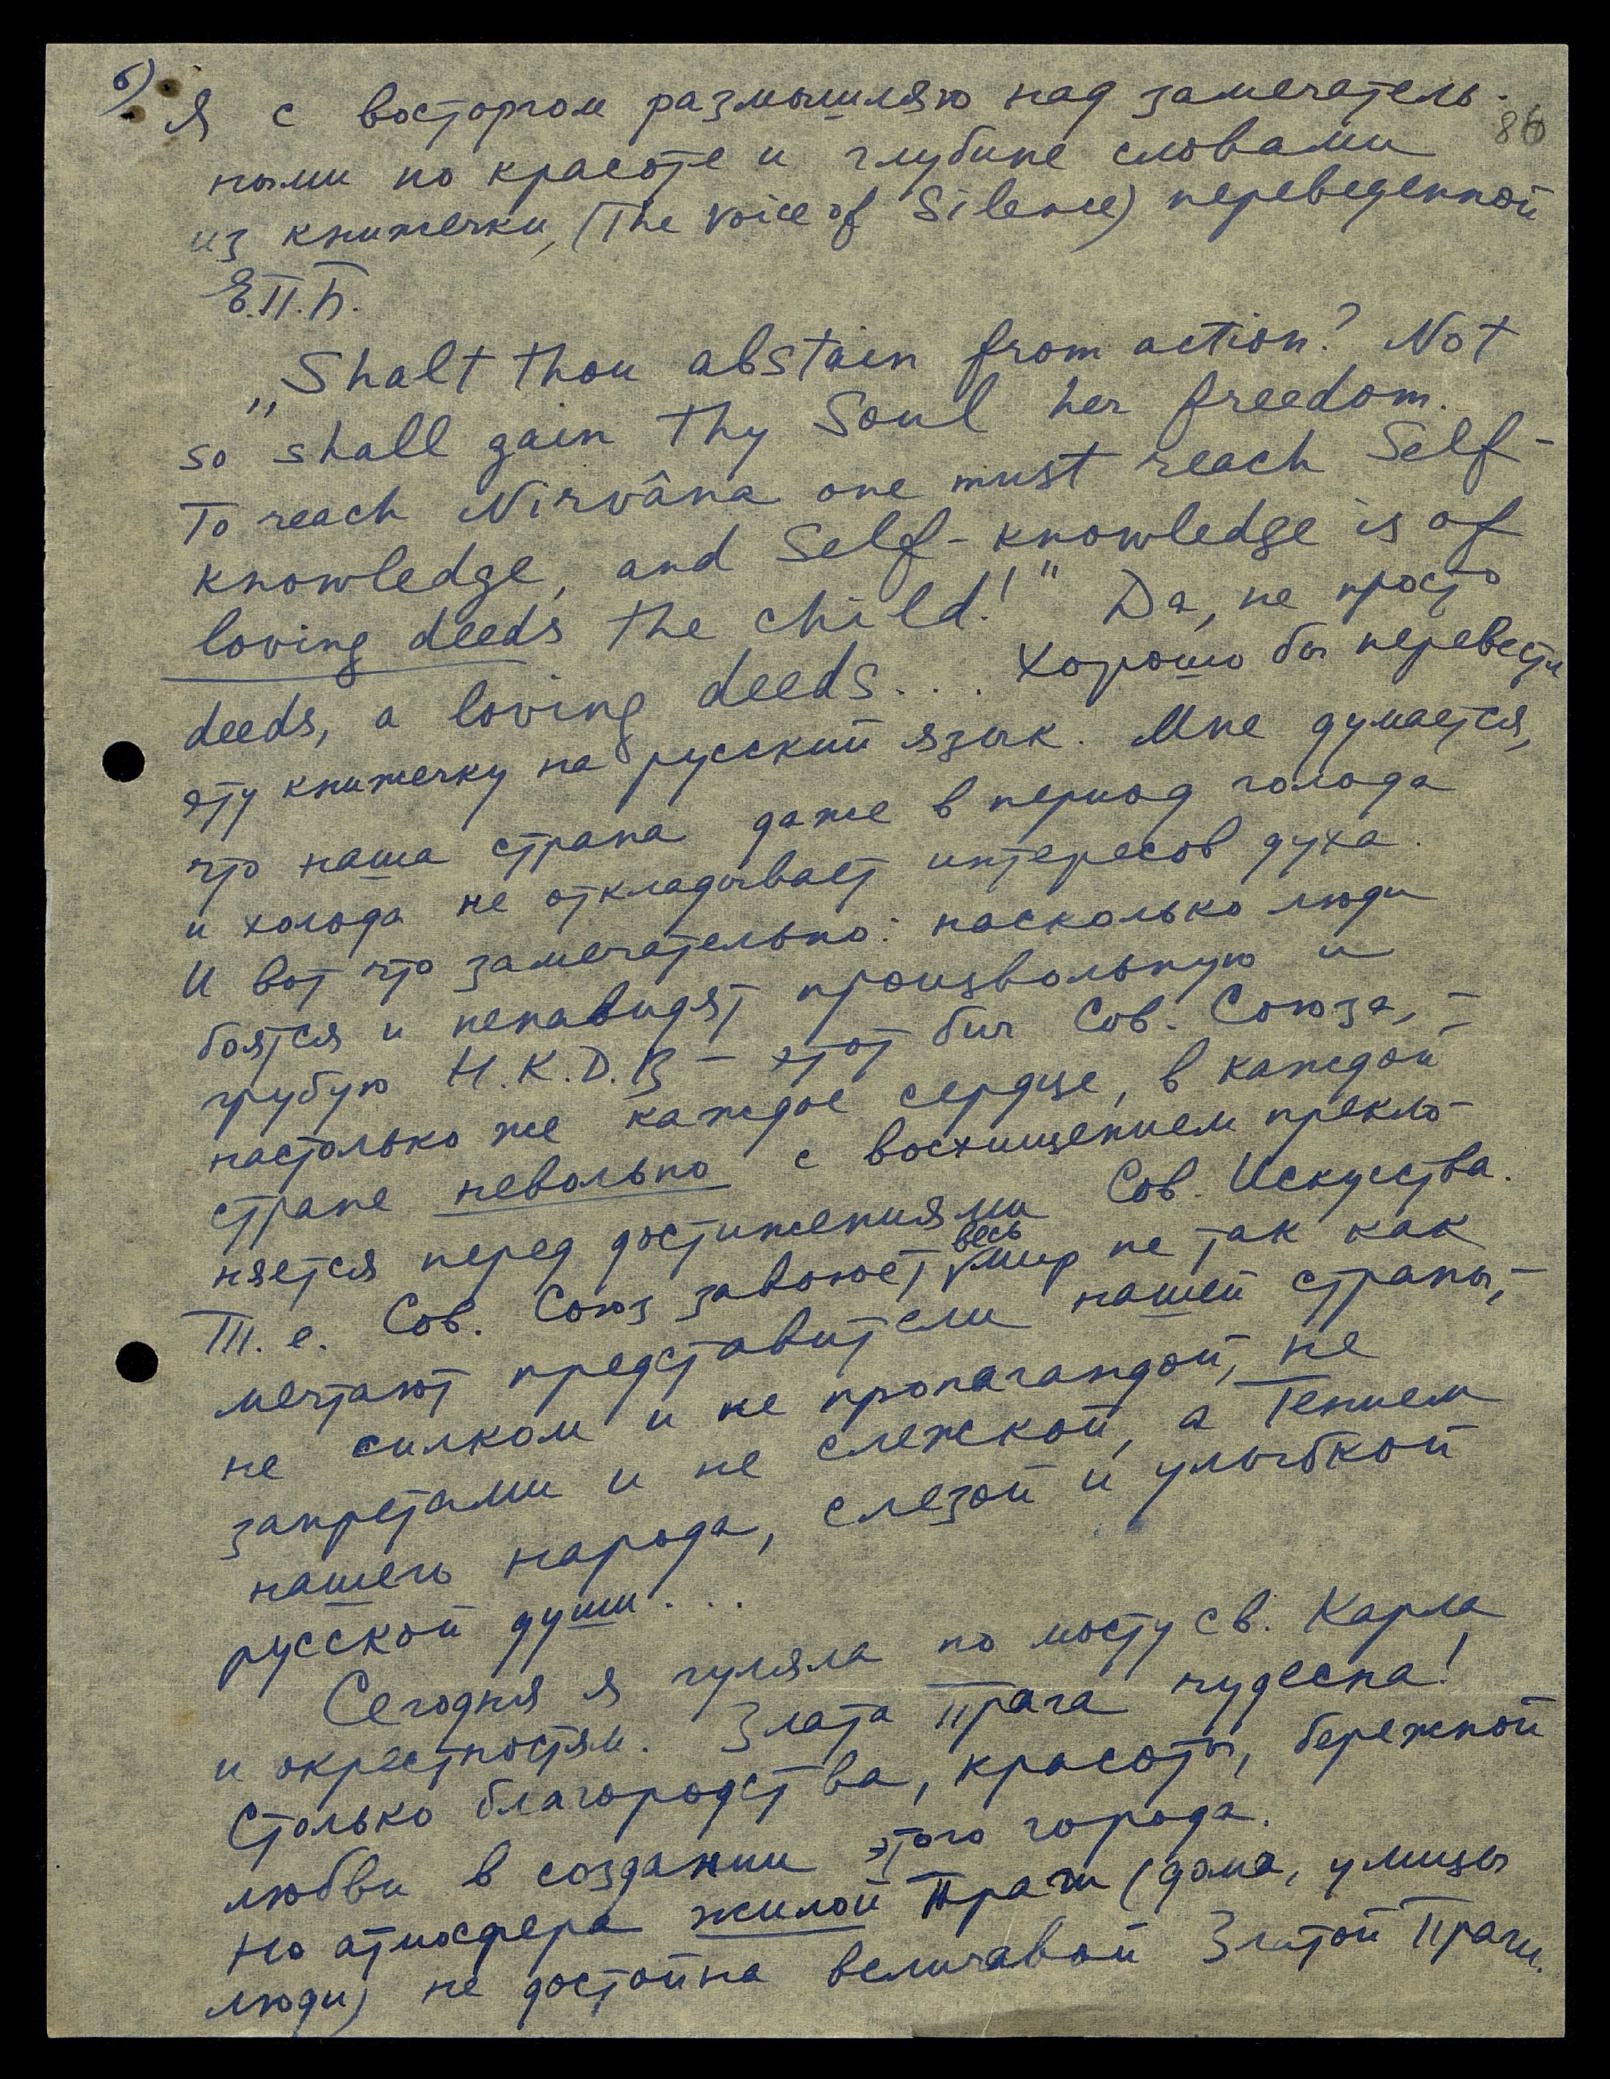 б)
Я с восторгом размышляю над замечатель-
86
ными по красоте и глубине словами
из книжечки, (The Voice of Silence) переведенной
Е.П.Б.
„Shalt thou abstain from action? Not
so shall gain thy Soul her freedom.
To reach Nirvâna one must reach Self-
knowledge, and Self-knowledge is of
loving deeds the child!" Да, не просто
deeds, а loving deeds... Хорошо бы перевести
эту книжечку на русский язык. Мне думается,
что наша страна даже в период голода
и холода не откладывает интересов духа.
И вот что замечательно: насколько люди
боятся и ненавидят произвольную и
грубую Н.К.Д.В – этот бич Сов. Союза, –
настолько же каждое сердце, в каждой
стране невольно с восхищением прекло-
няется перед достижениями Сов. Искуства.
Т.е. Сов. Союз завоюет весь мир не так как
мечтают представители нашей страны, –
не силком и не пропагандой, не
запретами и не слежкой, а Гением
нашего народа, слезой и улыбкой
русской души...
Сегодня я гуляла по мосту св. Карла
и окрестностям. Злата Прага чудесна!
Столько благородства, красоты, бережной
любви в создании этого города.
Но атмосфера жилой Праги (дома, улицы
люди) не достойна величавой Златой Праги.